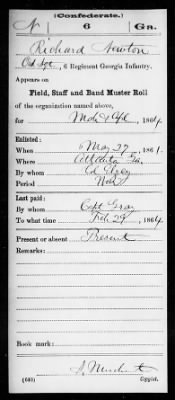 (Confederate.)
N 6 Ga.
Richard Newton
Ord Sgt, 6 Regiment Georgia Infantry.
Appears on
Field, Staff and Band Muster Roll
of the organization named above,
for Mch & Apl, 1864
Enlisted:
When May 27, 1861.
Where Atlanta Ga.
By whom
Period War
Last paid:
By whom Capt Gray
To what time Feb 29, 1864
Present or absent Present
Remarks:
Book mark:
(640) Copyist.